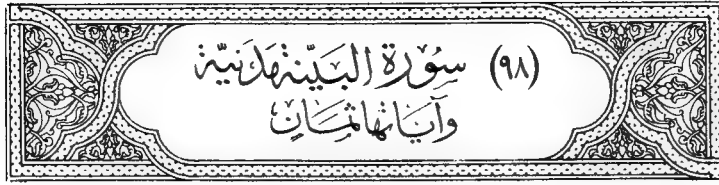 (٩٨) سُورَة البَيّنَة مَدَنيّة
وَآيَاتهَا ثمَانِ